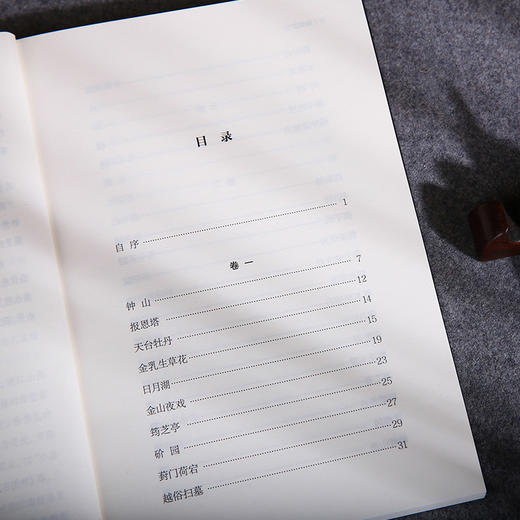 目录
自序 1
卷一
钟山 7
报恩塔 12
天台牡丹 14
金乳生草花 15
日月湖 19
金山夜戏 23
筠芝亭 25
砎园 27
葑门荷宕 29
越俗扫墓 31